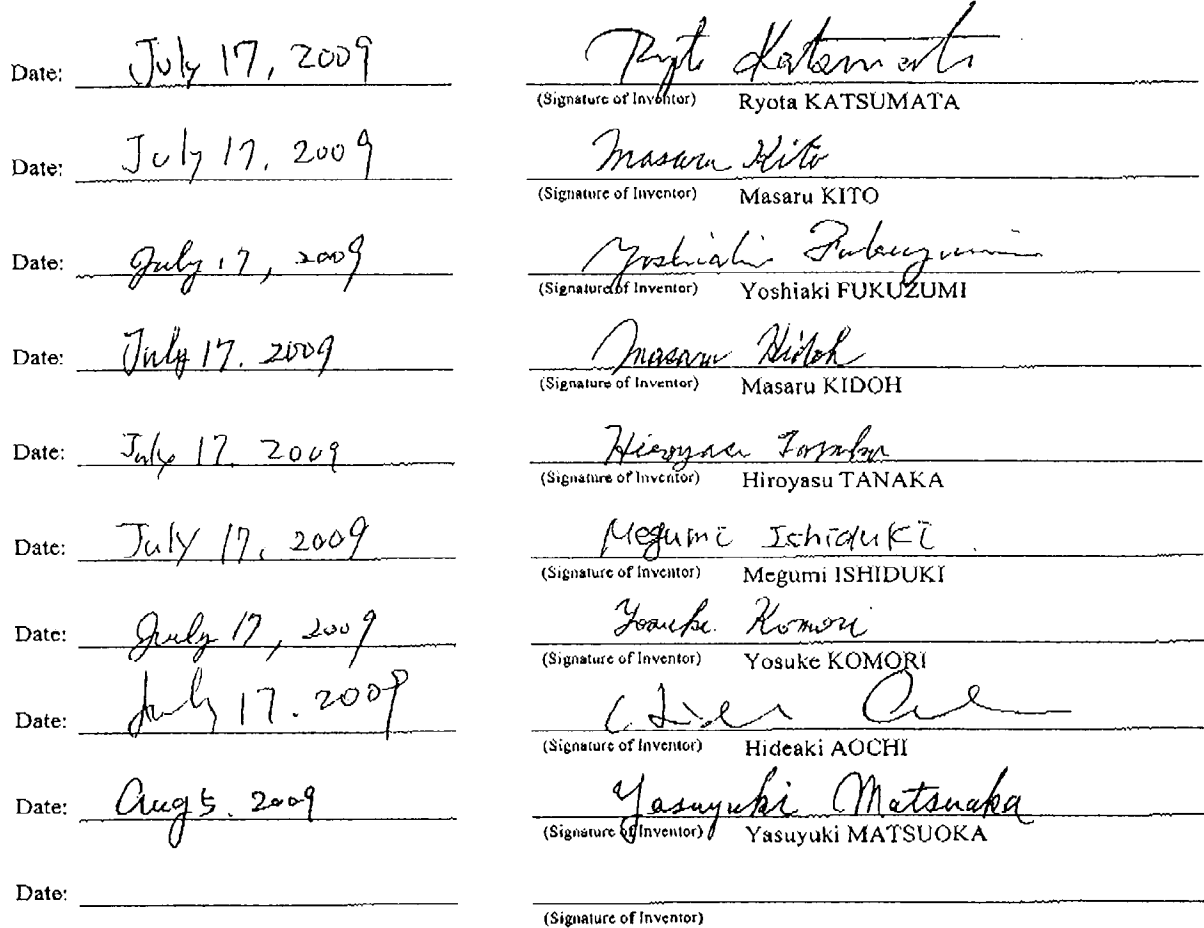 Date: July 17, 2009 Ryota Katsumata
(Signature of Inventor) Ryota KATSUMATA
Date: July 17. 2009 Masaru Kito
(Signature of Inventor) Masaru KITO
Date: July 17, 2009 Yoshiaki Fukuzumi
(Signature of Inventor) Yoshiaki FUKUZUMI
Date: July 17. 2009 Masaru Kidoh
(Signature of Inventor) Masaru KIDOH
Date: July 17. 2009 Hiroyasu Tanaka
(Signature of Inventor) Hiroyasu TANAKA
Date: July 17, 2009 Megumi Ishiduki
(Signature of Inventor) Megumi ISHIDUKI
Date: July 17, 2009 Yosuke Komori
(Signature of Inventor) Yosuke KOMORI
Date: July 17. 2009
(Signature of Inventor) Hideaki AOCHI
Date: Aug 5. 2009 Yasuyuki Matsuoka
(Signature of Inventor) Yasuyuki MATSUOKA
Date:
(Signature of Inventor)